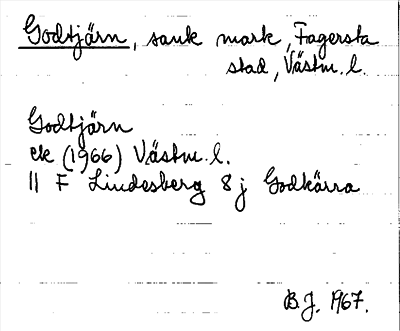 Godtjärn, sank mark, Fagersta
stad, Västm. l.
Godtjärn
ek (1966) Västm. l.
11 F Lindesberg 8 j Godkärra
B.J. 1967.